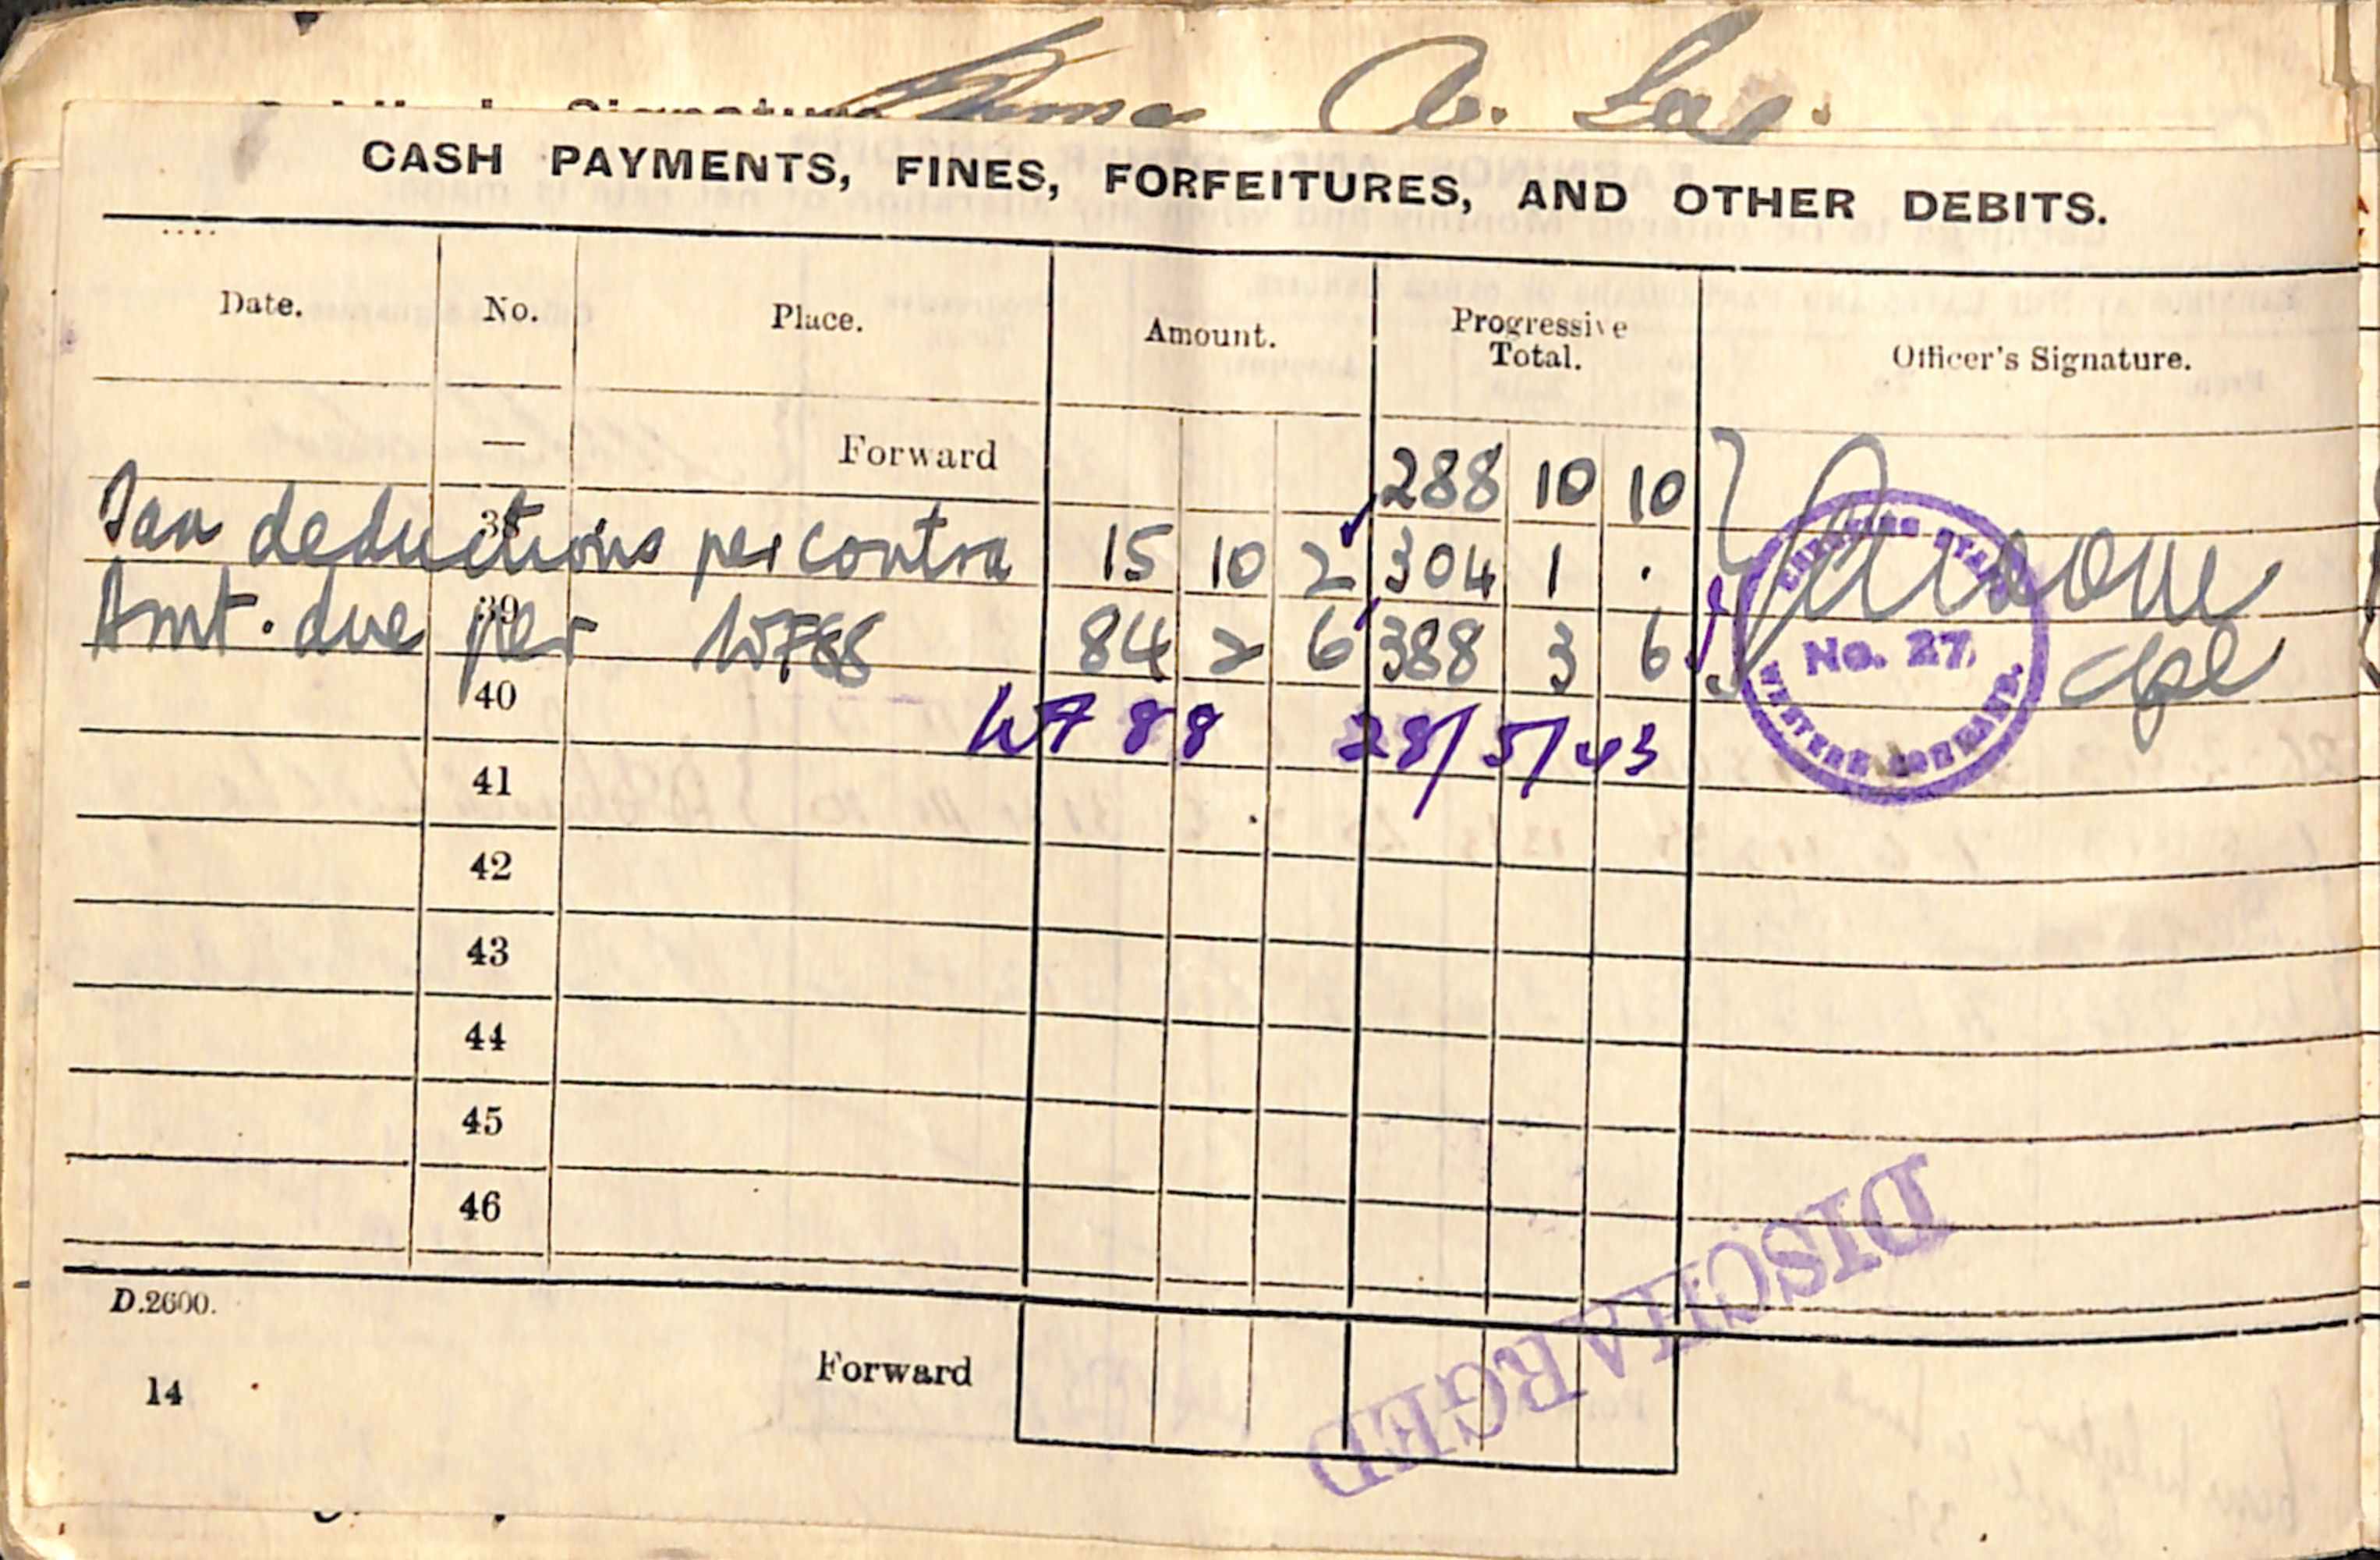 Signature
CASH PAYMENTS, FINES, FORFEITURES, AND OTHER DEBITS.
Date. No. Place. Amount. Progressive Total. Officer's Signature.
— Forward 288 10 10
38 Tax deductions per contra 15 10 2 304 1 .
39 Amt. due per WF88 84 2 6 388 3 6
No. 27
WESTERN COMMAND.
Cpl
40 WF 88 28/5/43
41
42
43
44
45
46
D.2600.
Forward
14
DISCHARGED